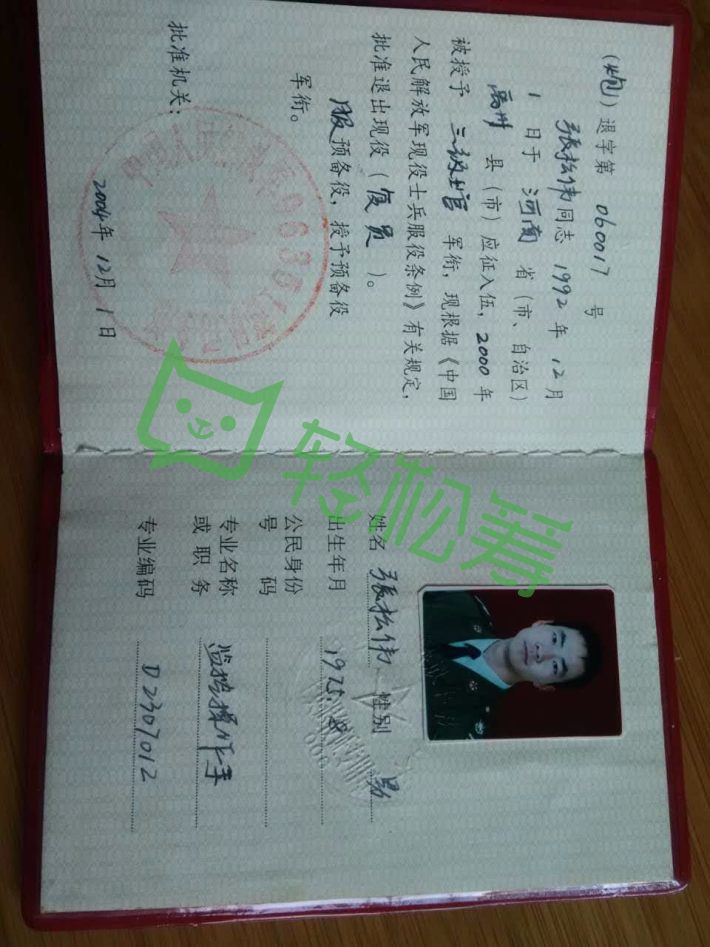 (炮) 退字第 060017 号
张松伟 同志 1992 年 12 月
1 日于 河南 省(市、自治区)
禹州 县(市)应征入伍, 2000 年
被授予 三级士官 军衔,现根据《中国
人民解放军现役士兵服役条例》有关规定,
批准退出现役(复员)。
服 预备役,授予预备役
军衔。
批准机关:
2004 年 12 月 1 日
姓名 张松伟 性别 男
出生年月 1975.8
公民身份
号 码
专业名称
或 职 务 监控操作手
专业编码 D2307012
轻松筹